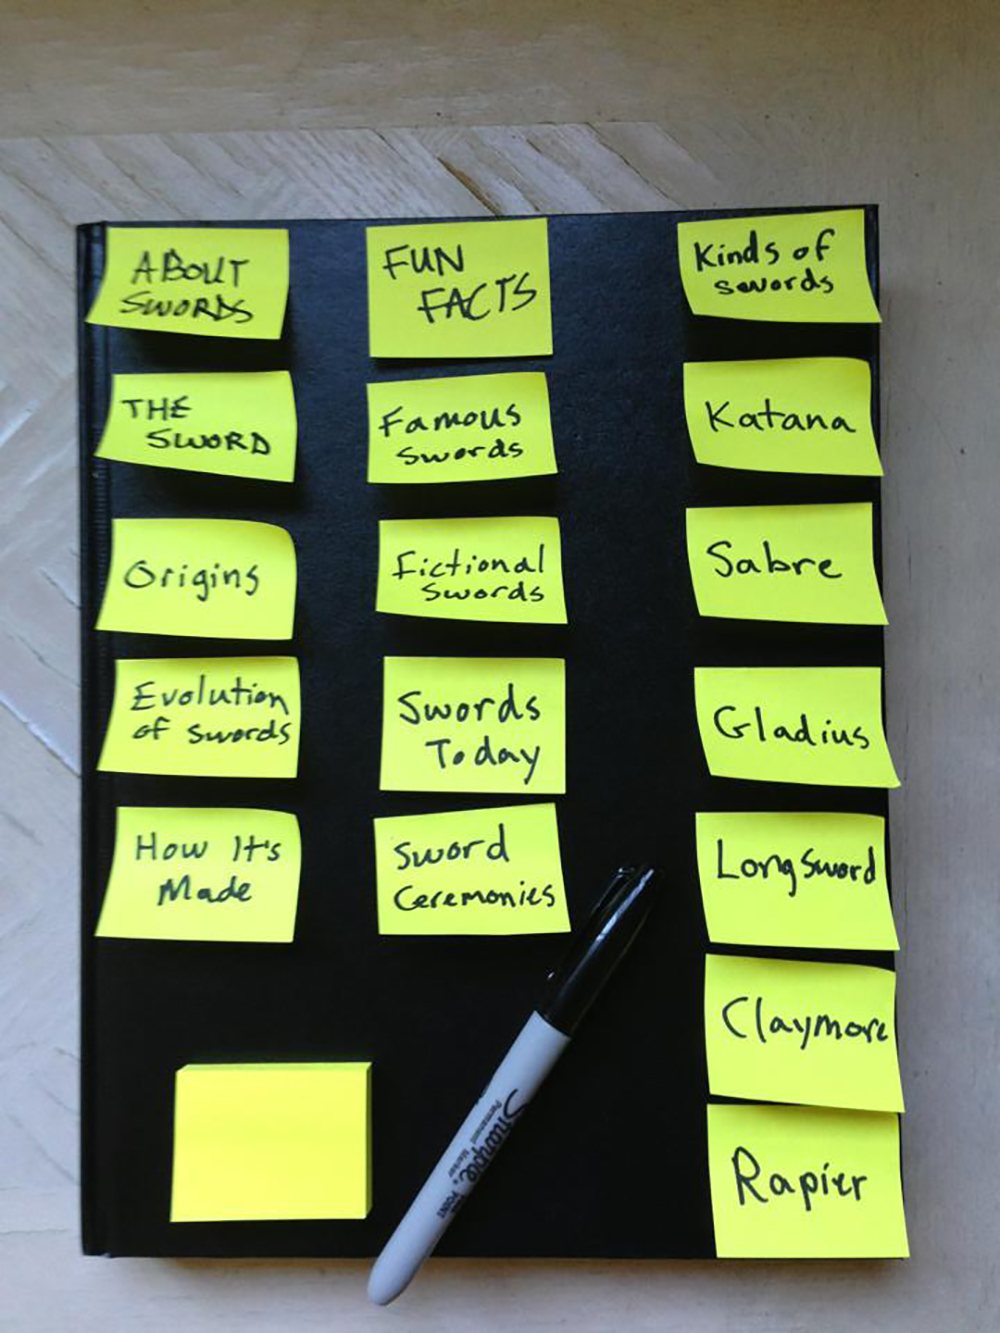 ABOUT
SWORDS
THE
SWORD
Origins
Evolution
of swords
How It's
Made
FUN
FACTS
Famous
Swords
Fictional
Swords
Swords
Today
Sword
Ceremonies
Kinds of
swords
Katana
Sabre
Gladius
Longsword
Claymore
Rapier
Sharpie
Permanent Marker
POINT